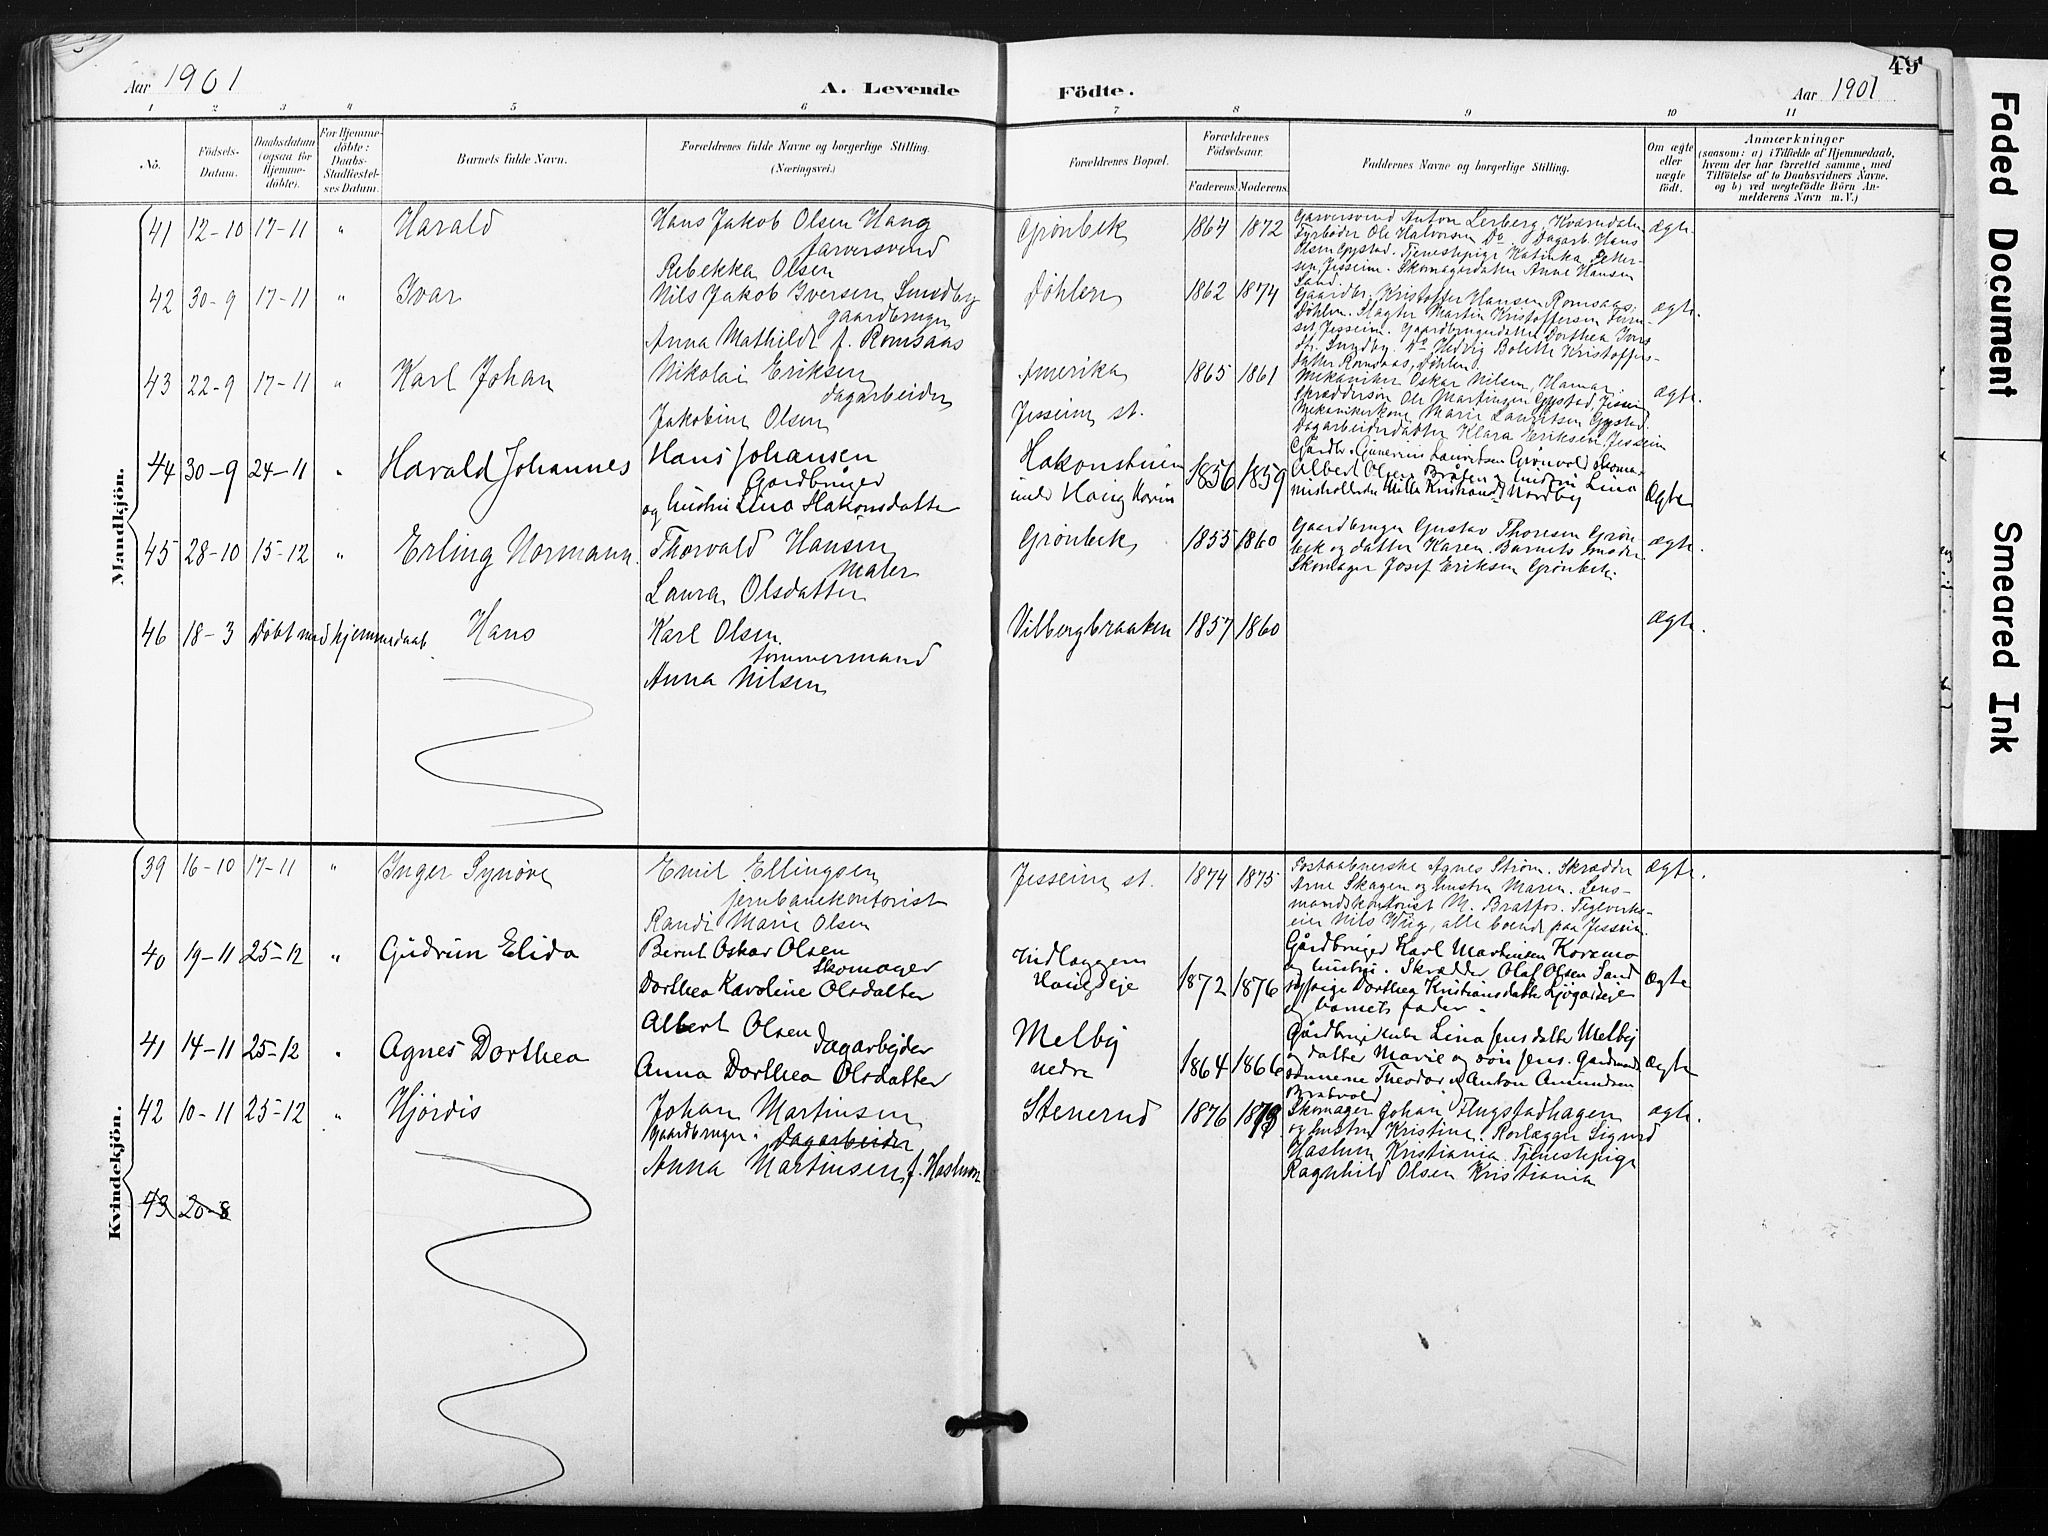 49
Aar 1901
A. Levende Födte.
Aar 1901
1 2 3 4 5 6 7 8 9 10 11
No.
Födsels-
Datum.
Daabsdatum
(ogsaa for
Hjemme-
döbte).
For Hjemme-
döbte:
Daabs-
Stadfæstel-
ses Datum.
Barnets fulde Navn.
Forældrenes fulde Navne og borgerlige Stilling.
(Næringsvei.)
Forældrenes Bopæl.
Forældrenes
Födselsaar.
Faderens. Moderens.
Faddernes Navne og borgerlige Stilling.
Om ægte
eller
uægte
födt.
Anmærkninger
(saasom: a) i Tilfælde af Hjemmedaab,
hvem der har forrettet samme, med
Tilföielse af to Daabsvidners Navne,
og b) ved uægtefödte Börn An-
melderens Navn m. V.)
Mandkjön.
41 12-10 17-11 " Harald
Hans Jakob Olsen Haug
farversvend
Rebekka Olsen
Grønbek 1864 1872
Garversvend Anton Lerberg, Kværndalen
Fyrbøder Ole Halvorsen Do. Dagarb. Hans
Olsen Gystad. Tjenestepige Katinka Petter-
sen, Jesseim. Skomagerdatter Anne Hansen
Sand.
Ægte.
42 30-9 17-11 " Ivar
Nils Jakob Iversen Sundby
gaardbruger
Anna Mathilde f. Romsaas
Døhlen 1862 1874
Gaardbr. Kristoffer Hansen Romsaas,
Døhlen. Slagter Martin Kristoffersen
Jesseim. Gaardbrugerdatter Dorthea Ivers
dtr. Sundby. Do Hedvig Bolette Kristoffers-
datter Romsaas, Døhlen.
ægte.
43 22-9 17-11 " Karl Johan
Nikolai Eriksen
dagarbeider
Jakobine Olsen
Amerika
Jesseim st. 1865 1861
Mekaniker Oskar Nilsen, Hamar.
Skræddersøn Ole Martinsen Gystad, Jesseim
Mekanikerkone Marie Lauritsen Gystad.
Dagarbeiderdatter Klara Eriksen Jesseim
ægte.
44 30-9 24-11 " Harald Johannes
Hans Johansen
Gårdbruger
og hustru Lina Hakonsdatter
Hakonstuen
under Haug 1856 1859
Gårdbr. Gunerius Lauritsen Grønvold
Albert Olsen Bråten hustru Lina
Nordby
Ægte
45 28-10 15-12 " Erling Normann.
Thorvald Hansen
Maler
Laura Olsdatter
Grønbek 1855 1860
Gaardbruger Gustav Thoresen Grøn-
bek og datter Karen. Barnets moder
Skomager Josef Eriksen Grønbek.
ægte.
46 18-3 Døbt med hjemmedaab. Hans
Karl Olsen
tømmermand
Anna Nilsen
Vilbergbraaten 1857 1860
Ægte.
Kvindekjön.
39 16-10 17-11 " Inger Synøve
Emil Ellingsen
jernbanekontorist
Randi Marie Olsen
Jesseim st. 1874 1875
Postaabnerske Agnes Strøm. Skrædder
Arne Skagen og hustru Maren. Lens-
mandskontorist M. Bratfos. Teglverks-
eier Nils Wiig, alle boende paa Jesseim.
Ægte.
40 19-11 25-12 " Gudrun Elida
Bernt Oskar Olsen
Skomager
Dorthea Karoline Olsdatter
Indlæggem
Haugseje 1872 1876
Gårdbruger Karl Martinsen Koremo
og hustru. Skrædder Olaf Olsen Sand
sypige Dorthea Kristiansdatter
og barnets fader.
Ægte
41 14-11 25-12 " Agnes Dorthea
Albert Olsen
Dagarbejder
Anna Dorthea Olsdatter
Melby
nedre 1864 1866
Gårdbrugerenke Lina Jensdatter Melby
og datter Marie og søn Jens. Gårdmands
sønnerne Theodor og Anton Amundsen
Bråtvold
Ægte
42 10-11 25-12 " Hjørdis
Johan Martinsen
gaardbruger. Dagarbeider
Anna Martinsen, f. Haslum
Stenerud 1876 1873
Skomager Johan Flugstadhagen
og hustru Kristine. Rørlægger Sigurd
Haslum Kristiania. Tjenestepige
Ragnhild Olsen Kristiania
ægte.
43 20-8
Faded Document
Smeared Ink